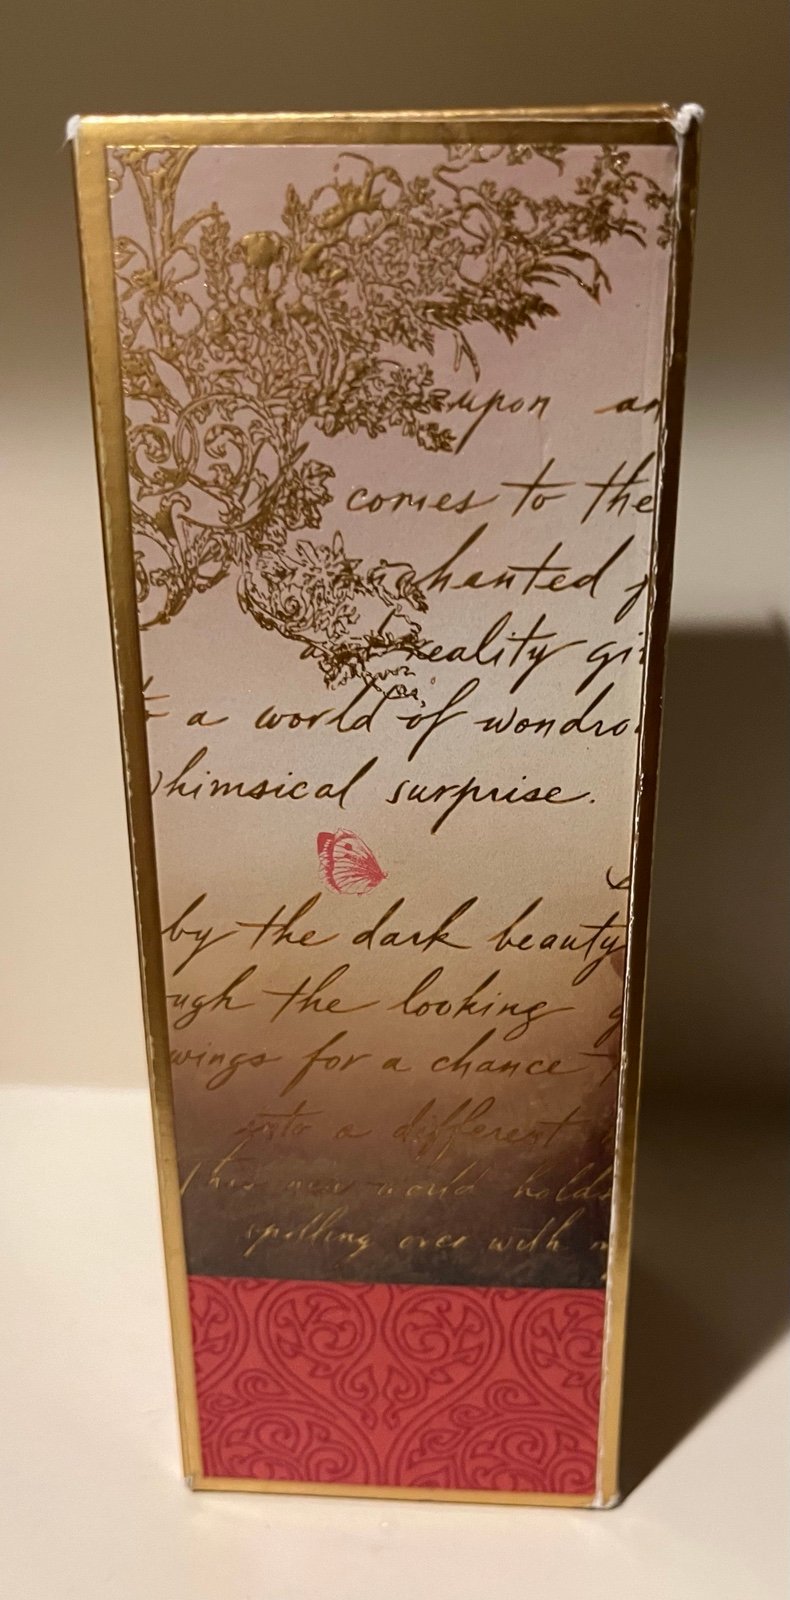 upon an
comes to the
enchanted
reality gi
a world of wondro
whimsical surprise.
by the dark beauty
ugh the looking g
wings for a chance
into a different
This new world holds
spilling over with m